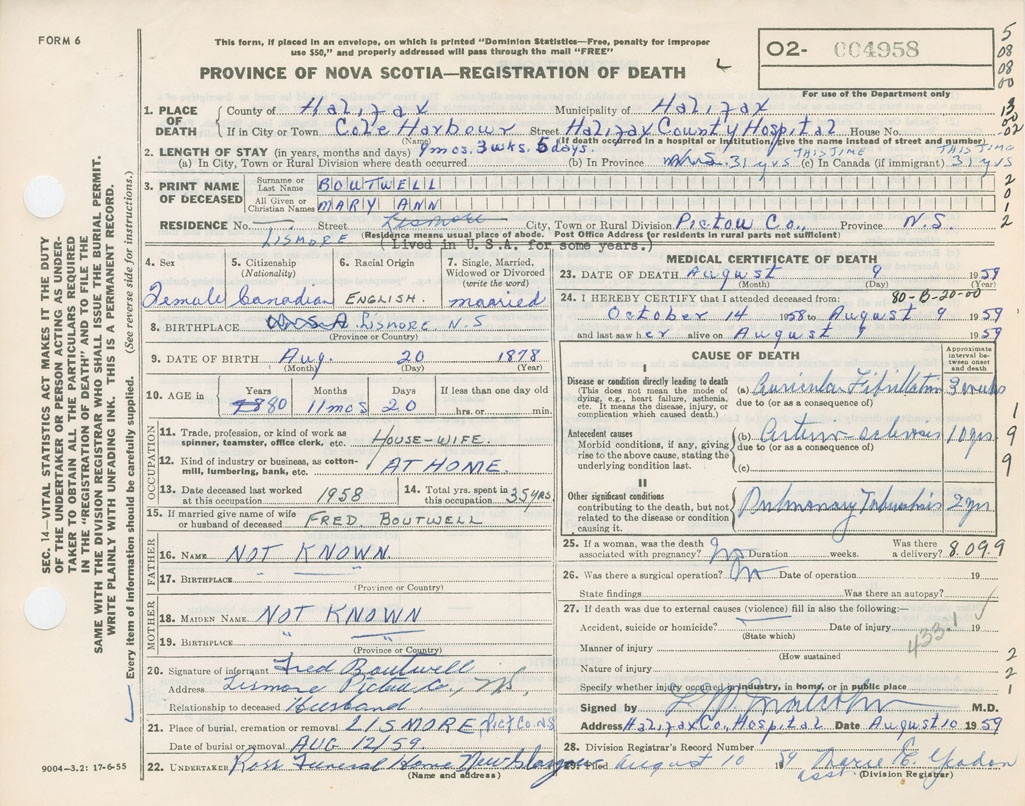 FORM 6
This form, if placed in an envelope, on which is printed "Dominion Statistics—Free, penalty for improper
use $50," and properly addressed will pass through the mail "FREE"
PROVINCE OF NOVA SCOTIA—REGISTRATION OF DEATH
O2- 004958
For use of the Department only
5
08
08
00
13
00
02
SEC. 14—VITAL STATISTICS ACT MAKES IT THE DUTY
OF THE UNDERTAKER OR PERSON ACTING AS UNDER-
TAKER TO OBTAIN ALL THE PARTICULARS REQUIRED
IN THE "REGISTRATION OF DEATH" AND TO FILE THE
SAME WITH THE DIVISION REGISTRAR WHO SHALL ISSUE THE BURIAL PERMIT.
WRITE PLAINLY WITH UNFADING INK. THIS IS A PERMANENT RECORD.
Every item of information should be carefully supplied. (See reverse side for instructions.)
1. PLACE OF DEATH
County of Halifax Municipality of Halifax
If in City or Town Cole Harbour Street Halifax County Hospital House No.
(Name) (If death occurred in a hospital or institution, give the name instead of street and number)
2. LENGTH OF STAY (in years, months and days) 9 mos. 3 wks. 5 days.
(a) In City, Town or Rural Division where death occurred (b) In Province 31 yrs THIS TIME (c) In Canada (if immigrant) 31 yrs THIS TIME
3. PRINT NAME OF DECEASED
Surname or Last Name BOUTWELL
All Given or Christian Names MARY ANN
2
0
1
2
RESIDENCE No. Street Lismore City, Town or Rural Division Pictou Co., Province N.S.
LISMORE (Residence means usual place of abode. Post Office Address for residents in rural parts not sufficient)
(Lived in U.S.A. for some years.)
4. Sex Female
5. Citizenship (Nationality) Canadian
6. Racial Origin ENGLISH.
7. Single, Married, Widowed or Divorced (write the word) married
8. BIRTHPLACE U.S.A Lismore, N.S
(Province or Country)
9. DATE OF BIRTH Aug. 20 1878
(Month) (Day) (Year)
10. AGE in Years 80 Months 11 mos Days 20 If less than one day old hrs. or min.
OCCUPATION
11. Trade, profession, or kind of work as spinner, teamster, office clerk, etc. HOUSE-WIFE.
12. Kind of industry or business, as cotton-mill, lumbering, bank, etc. AT HOME.
13. Date deceased last worked at this occupation 1958
14. Total yrs. spent in this occupation 35 YRS.
15. If married give name of wife or husband of deceased FRED BOUTWELL
FATHER
16. NAME NOT KNOWN
17. BIRTHPLACE
(Province or Country)
MOTHER
18. MAIDEN NAME NOT KNOWN
19. BIRTHPLACE " "
(Province or Country)
20. Signature of informant Fred Boutwell
Address Lismore Pictou Co., N.S.
Relationship to deceased Husband
21. Place of burial, cremation or removal LISMORE Pict Co. N.S
Date of burial or removal AUG 12/59.
22. UNDERTAKER Ross Funeral Home New Glasgow
(Name and address)
9004-3.2: 17-6-55
MEDICAL CERTIFICATE OF DEATH
23. DATE OF DEATH August 9 1959
(Month) (Day) (Year)
24. I HEREBY CERTIFY that I attended deceased from: 80-B-20-00
October 14 1958 to August 9 1959
and last saw her alive on August 9 1959
CAUSE OF DEATH
Approximate interval between onset and death
I
Disease or condition directly leading to death
(This does not mean the mode of dying, e.g., heart failure, asthenia, etc. It means the disease, injury, or complication which caused death.)
(a) Auricular Fibrillation 3 weeks
due to (or as a consequence of)
Antecedent causes
Morbid conditions, if any, giving rise to the above cause, stating the underlying condition last.
(b) Arterio-sclerosis 10 yrs
due to (or as a consequence of)
(c)
1
9
9
II
Other significant conditions
contributing to the death, but not related to the disease or condition causing it.
Pulmonary Tuberculosis 2 yrs
25. If a woman, was the death associated with pregnancy? No Duration weeks. Was there a delivery?
8.09.9
26. Was there a surgical operation? No Date of operation 19
State findings Was there an autopsy?
27. If death was due to external causes (violence) fill in also the following:—
Accident, suicide or homicide? Date of injury 19
(State which)
433.1
Manner of injury
(How sustained
Nature of injury
Specify whether injury occurred in industry, in home, or in public place
2
2
1
Signed by Malcolm M.D.
Address Halifax Co., Hospital Date August 10 1959
28. Division Registrar's Record Number
29. Filed August 10 1959 Marie E.
asst. (Division Registrar)